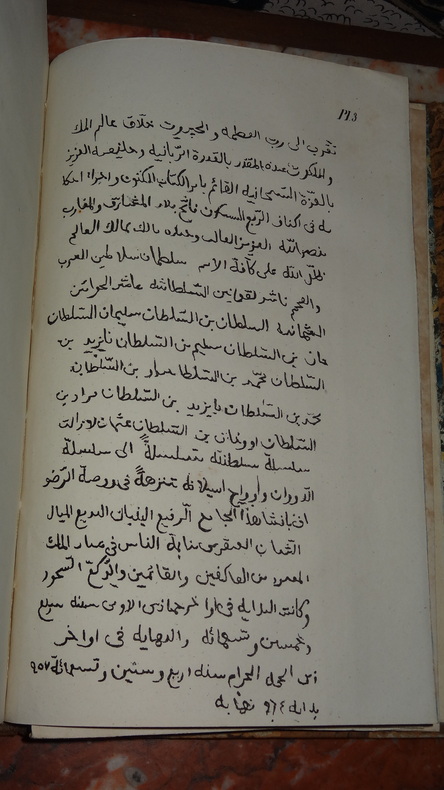 ١٢٣
تقرب الى رب العظمة والجبروت خلاق عالم الملك
والملكوت عبده المقتدر بالقدرة الربانية وخليفته العزيز
بالعزة السبحانية القائم بامر الكتاب المكنون واجراء احكا
مه فى اكناف الربع المسكون فاتح بلاد المشارق والمغارب
بنصر الله العزيز الغالب وجنده مالك ممالك العالم
ظل الله على كافة الامم سلطان سلاطين العرب
والعجم ناشر لقوانين السلطانية عاشر الخواقين
العثمانية السلطان بن السلطان سليمان السلطان
خان بن السلطان سليم بن السلطان بايزيد بن
السلطان محمد بن السلطان مراد بن السلطان
محمد بن السلطان بايزيد بن السلطان مراد بن
السلطان اورخان بن السلطان عثمان لازالت
سلسلة سلطنته متسلسلة الى سلسلة
الدوران وارواح اسلافه متنزهة فى روضة الرضو
ان بانشاء هذا الجامع الرفيع البنيان البديع
الناس فى الملك
المعبود من العاكفين والقائمين والركع السجود
وكانت البداية فى اواخر جماذى الاولى سنه سبع
وخمسين وتسعمائة والنهاية فى اواخر
ذى الحجة الحرام سنه اربع وستين وتسعمائة ٩٥٧
بداية ٩٦٤ نهاية